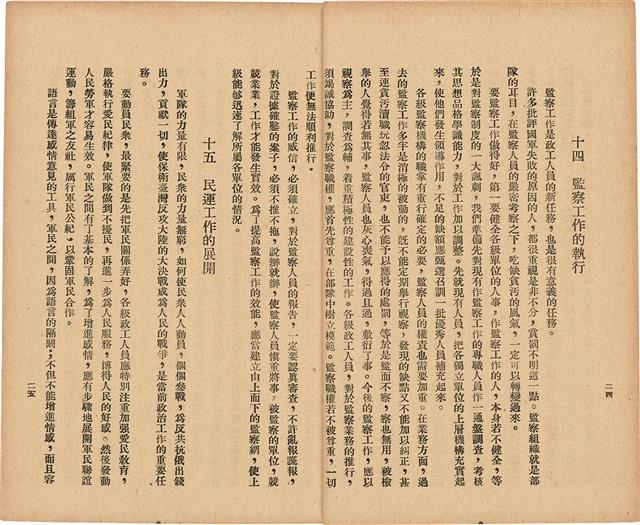 十四　監察工作的執行
監察工作是政工人員的新任務，也是很有意義的任務。
許多批評國軍失敗的原因的人，都很重視是非不分，賞罰不明這一點。監察組織就是部
隊的耳目，在監察人員的嚴密考察之下，吃缺貪污的風氣，一定可以轉變過來。
要監察工作做得好，第一要健全各級單位的人事，作監察工作的人，本身若不健全，等
於是對監察制度的一大諷刺，我們準備先對現有作監察工作的專職人員作一通盤調查，考核
其思想品格學識能力，對於工作加以調整。先就現有人員，把各獨立單位的上層機構充實起
來，使他們發生領導作用，不足的缺額應甄選召訓一批優秀人員補充起來。
各級監察機構的職掌有重行確定的必要，各級監察人員的權責也需要加重。在業務方面，過
去的監察工作多半是消極的被動的，旣不能定期舉行視察，發現的缺點又不能加以糾正，甚
至連貪污瀆職玩忽法令的官吏，也不能予以應得的處罰，等於是監而不察，察也無用，被檢
舉的人覺得若無其事，監察人員也灰心喪氣，得過且過，敷衍了事。今後的監察工作，應以
視察爲主，調查爲輔，着重積極性的建設性的工作。各級政工人員，對於監察業務的推行，
須竭誠協助，對於監察職權，應首先尊重，在部隊中樹立模範。監察職權若不被尊重，一切
工作便無法順利推行。
二四
監察工作的威信，必須確立，對於監察人員的報告，一定要認眞審查，不許亂報謊報，
對於證據確鑿的案子，必須不推不拖，說辦就辦，使監察人員愼重將事，被監察的單位，兢
兢業業，工作才能發生實效。爲了提高監察工作的效能，應當建立由上而下的監察網，使上
級能够迅速了解所屬各單位的情況。
十五　民運工作的展開
軍隊的力量有限，民衆的力量無窮，如何使民衆人人動員，個個參戰，爲反共抗俄出錢
出力，貢獻一切，使保衛臺灣反攻大陸的大決戰成爲人民的戰爭，是當前政治工作的重要任
務。
要動員民衆，最緊要的是先把軍民關係弄好，各級政工人員應特別注重加強愛民敎育，
嚴格執行愛民紀律，使軍隊做到不擾民，再進一步爲人民服務，博得人民的好感。然後發動
人民勞軍才容易生效。軍民之間有了基本的了解，爲了增進感情，應有步驟地展開軍民聯誼
運動，籌組軍之友社，厲行軍民公紀，以鞏固軍民合作。
語言是傳達感情意見的工具，軍民之間，因爲語言的隔閡，不但不能增進情感，而且容
二五